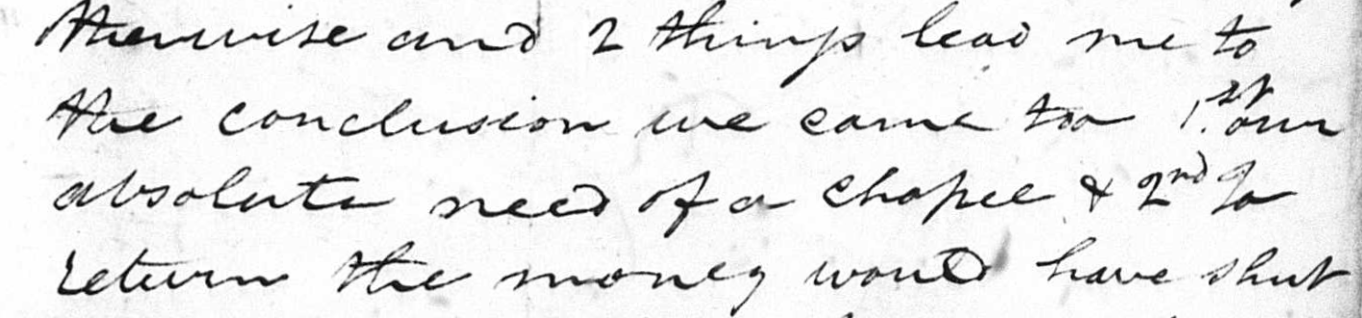 therwise and 2 things lead me to
the conclusion we came too 1.st our
absolute need of a chapel & 2nd To
return the money would have shut